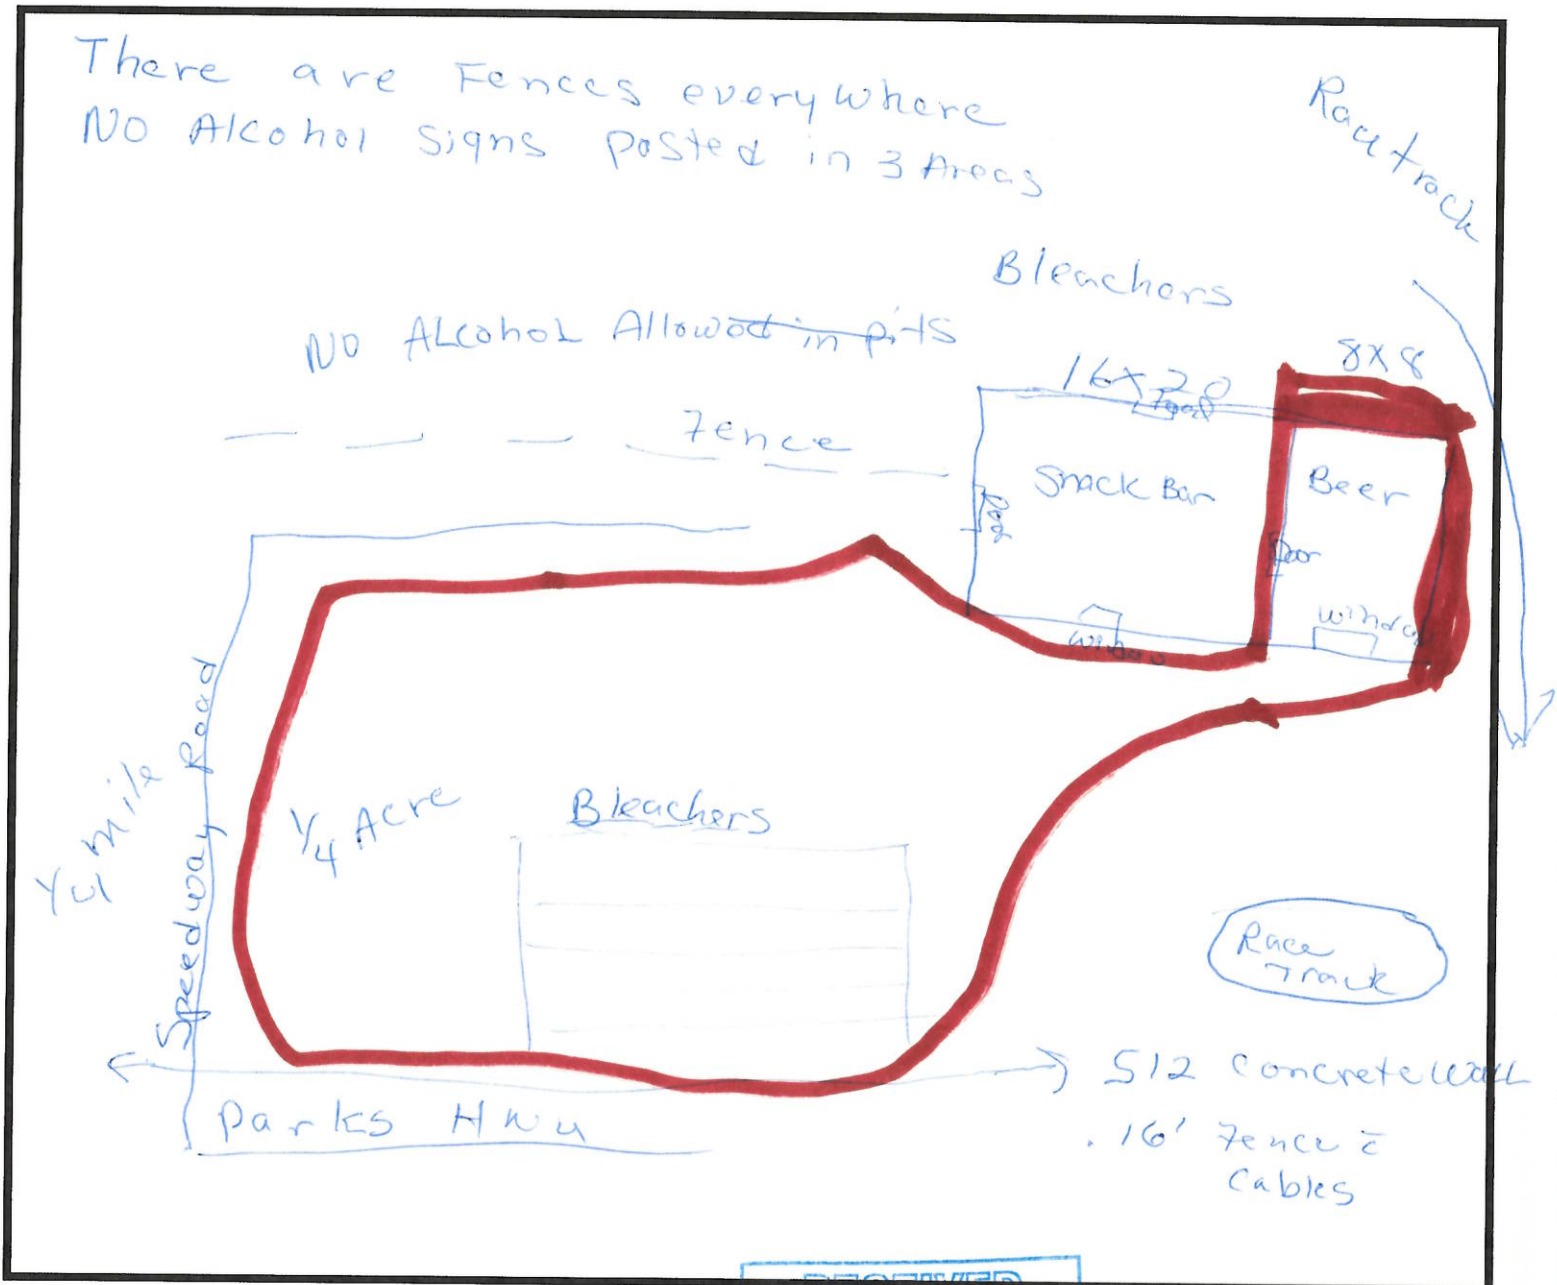 There are Fences everywhere
NO Alcohol Signs posted in 3 Areas
Racetrack
Bleachers
NO ALcohol Allowed in pits
16x20
8X8
Fence
Door
Snack Bar
Beer
Door
Window
Window
Speedway Road
1/4 mile
1/4 Acre
Bleachers
Race
Track
512 Concrete Wall
.16' Fence c̄
Cables
Parks Hwy
RECEIVED